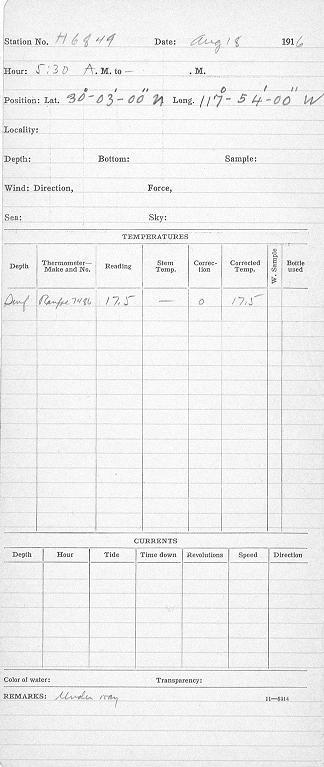 Station No. H6849 Date: Aug 18 1916
Hour: 5:30 A. M. to — . M.
Position: Lat. 30°-03'-00" N Long. 117°-54'-00" W
Locality:
Depth: Bottom: Sample:
Wind: Direction, Force,
Sea: Sky:
TEMPERATURES
Depth Thermometer—Make and No. Reading Stem Temp. Correction Corrected Temp. W. Sample Bottle used
7486 17.5 — 0 17.5
CURRENTS
Depth Hour Tide Time down Revolutions Speed Direction
Color of water: Transparency:
REMARKS: Under way 11—5314